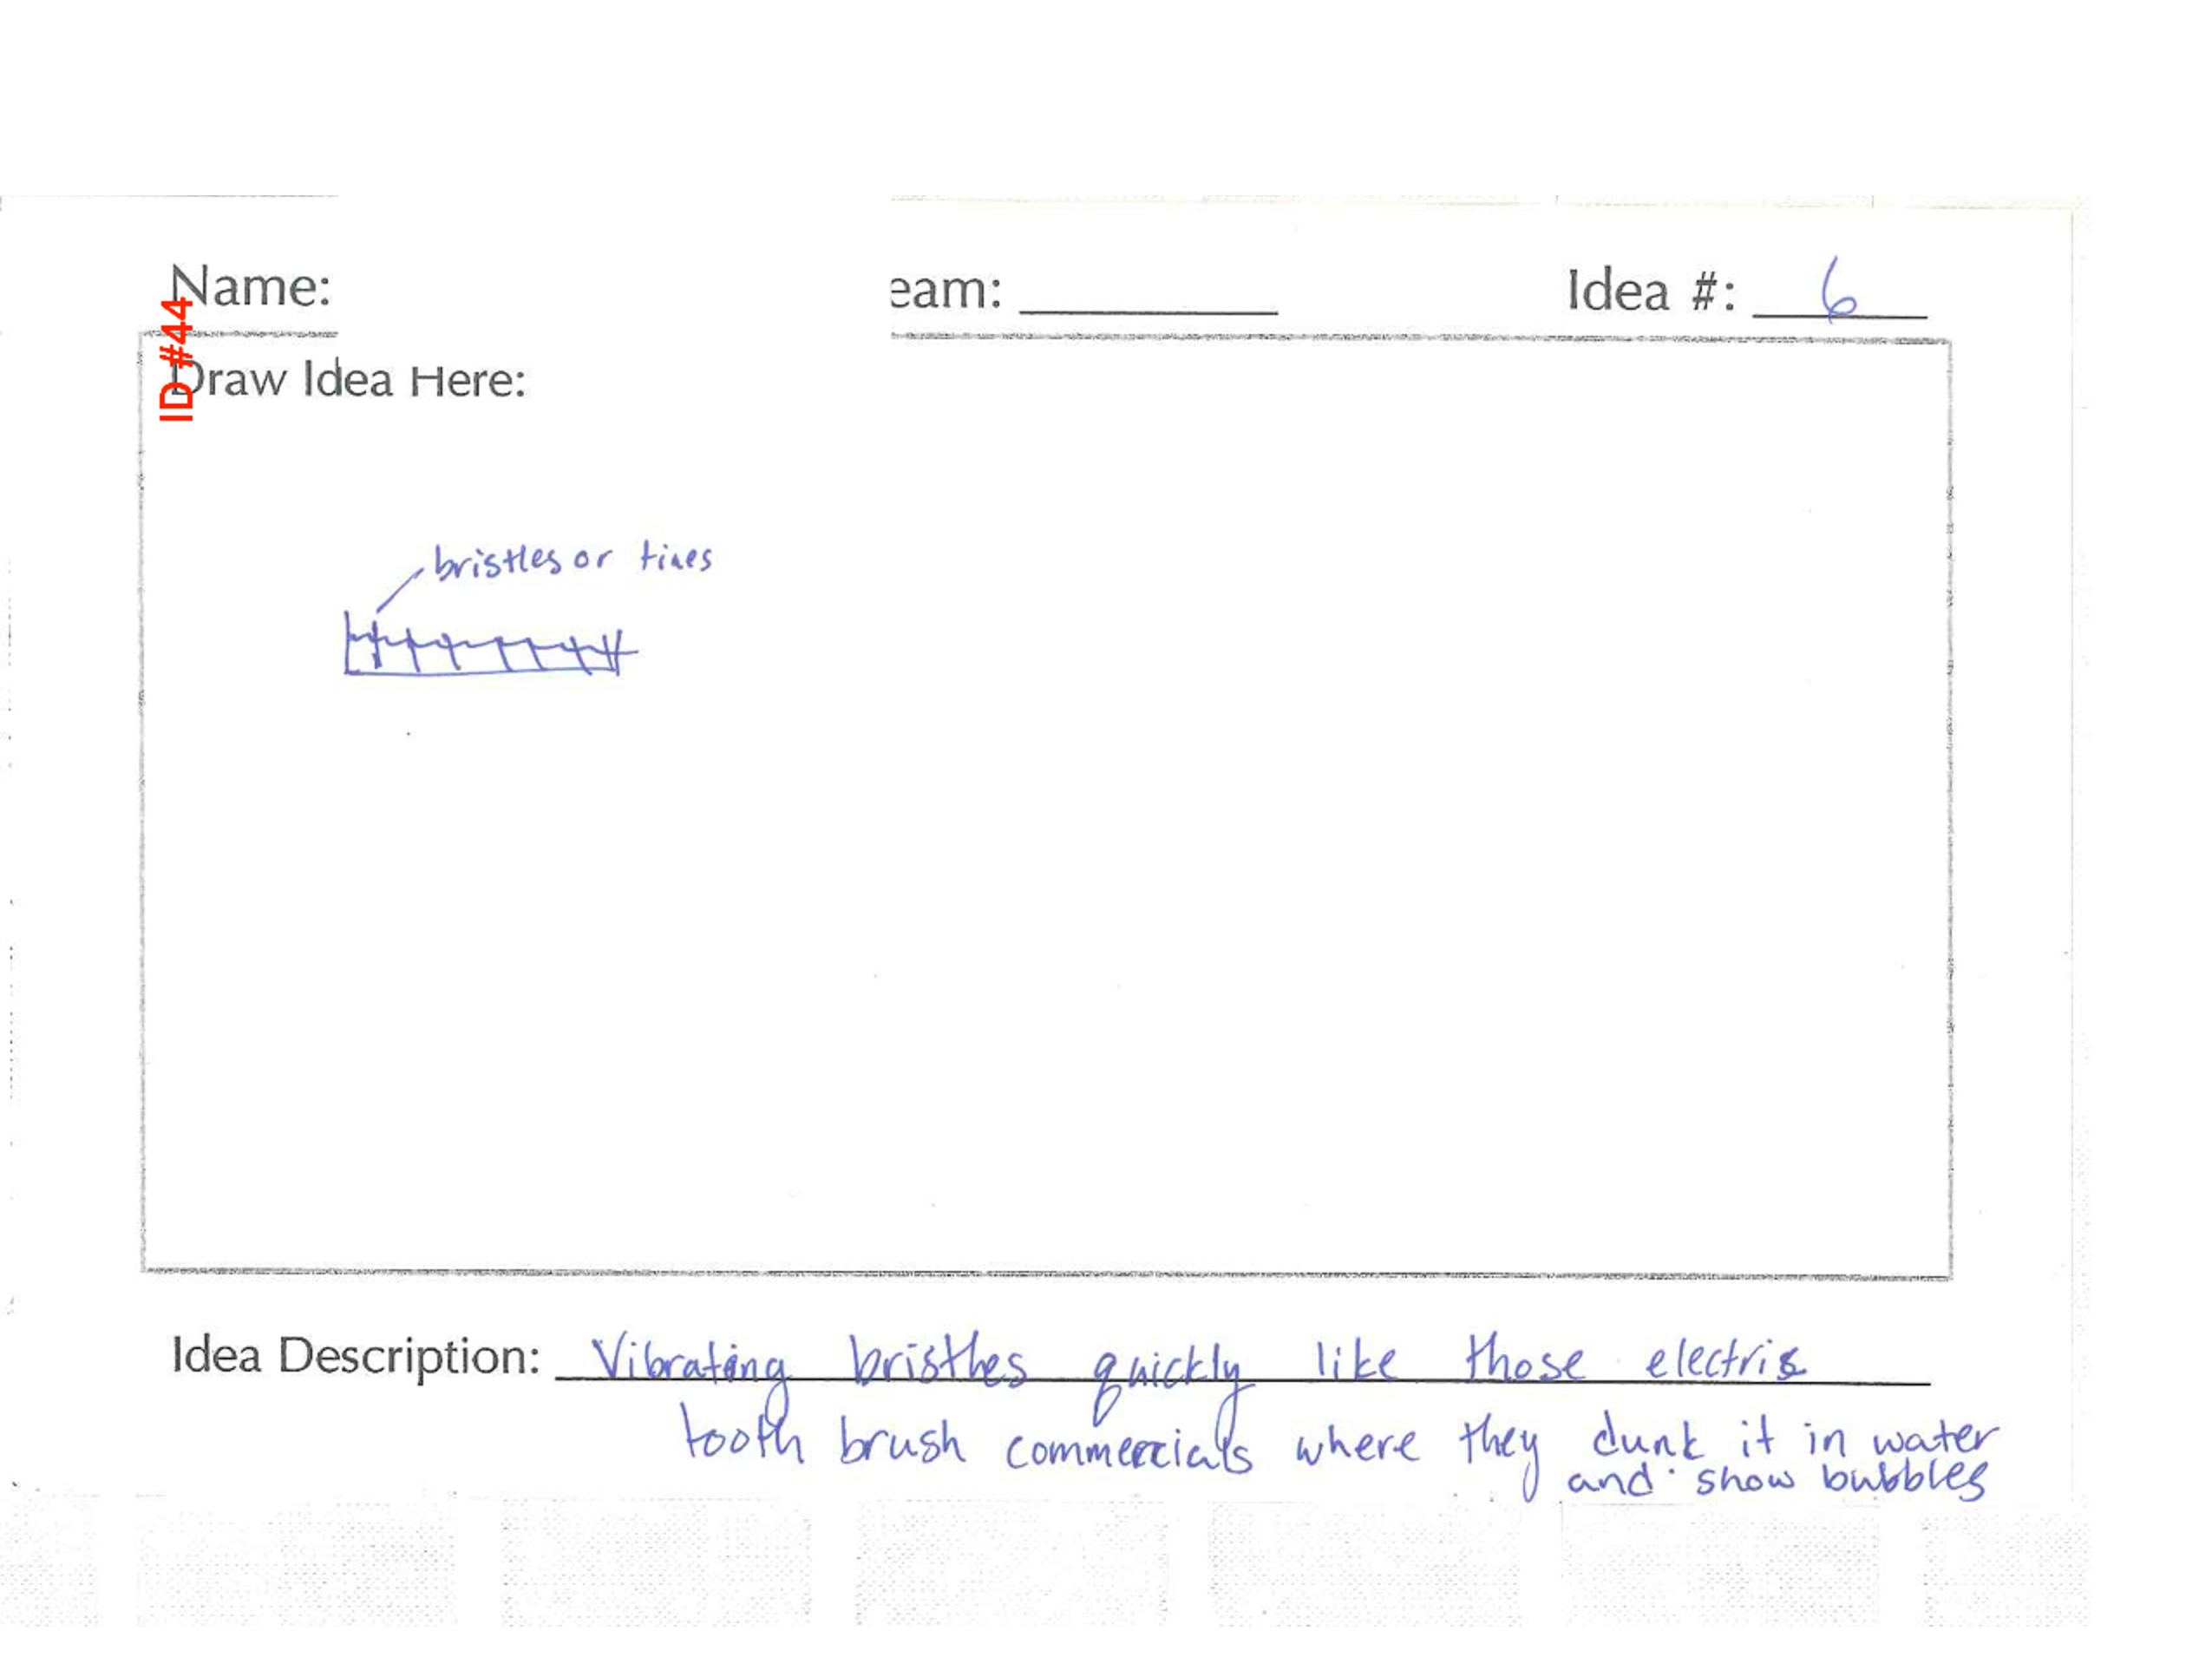 Name:
eam:
Idea #: 6
ID #44
Draw Idea Here:
bristles or tines
Idea Description: Vibrating bristhes quickly like those electric
tooth brush commercials where they dunk it in water
and show bubbles